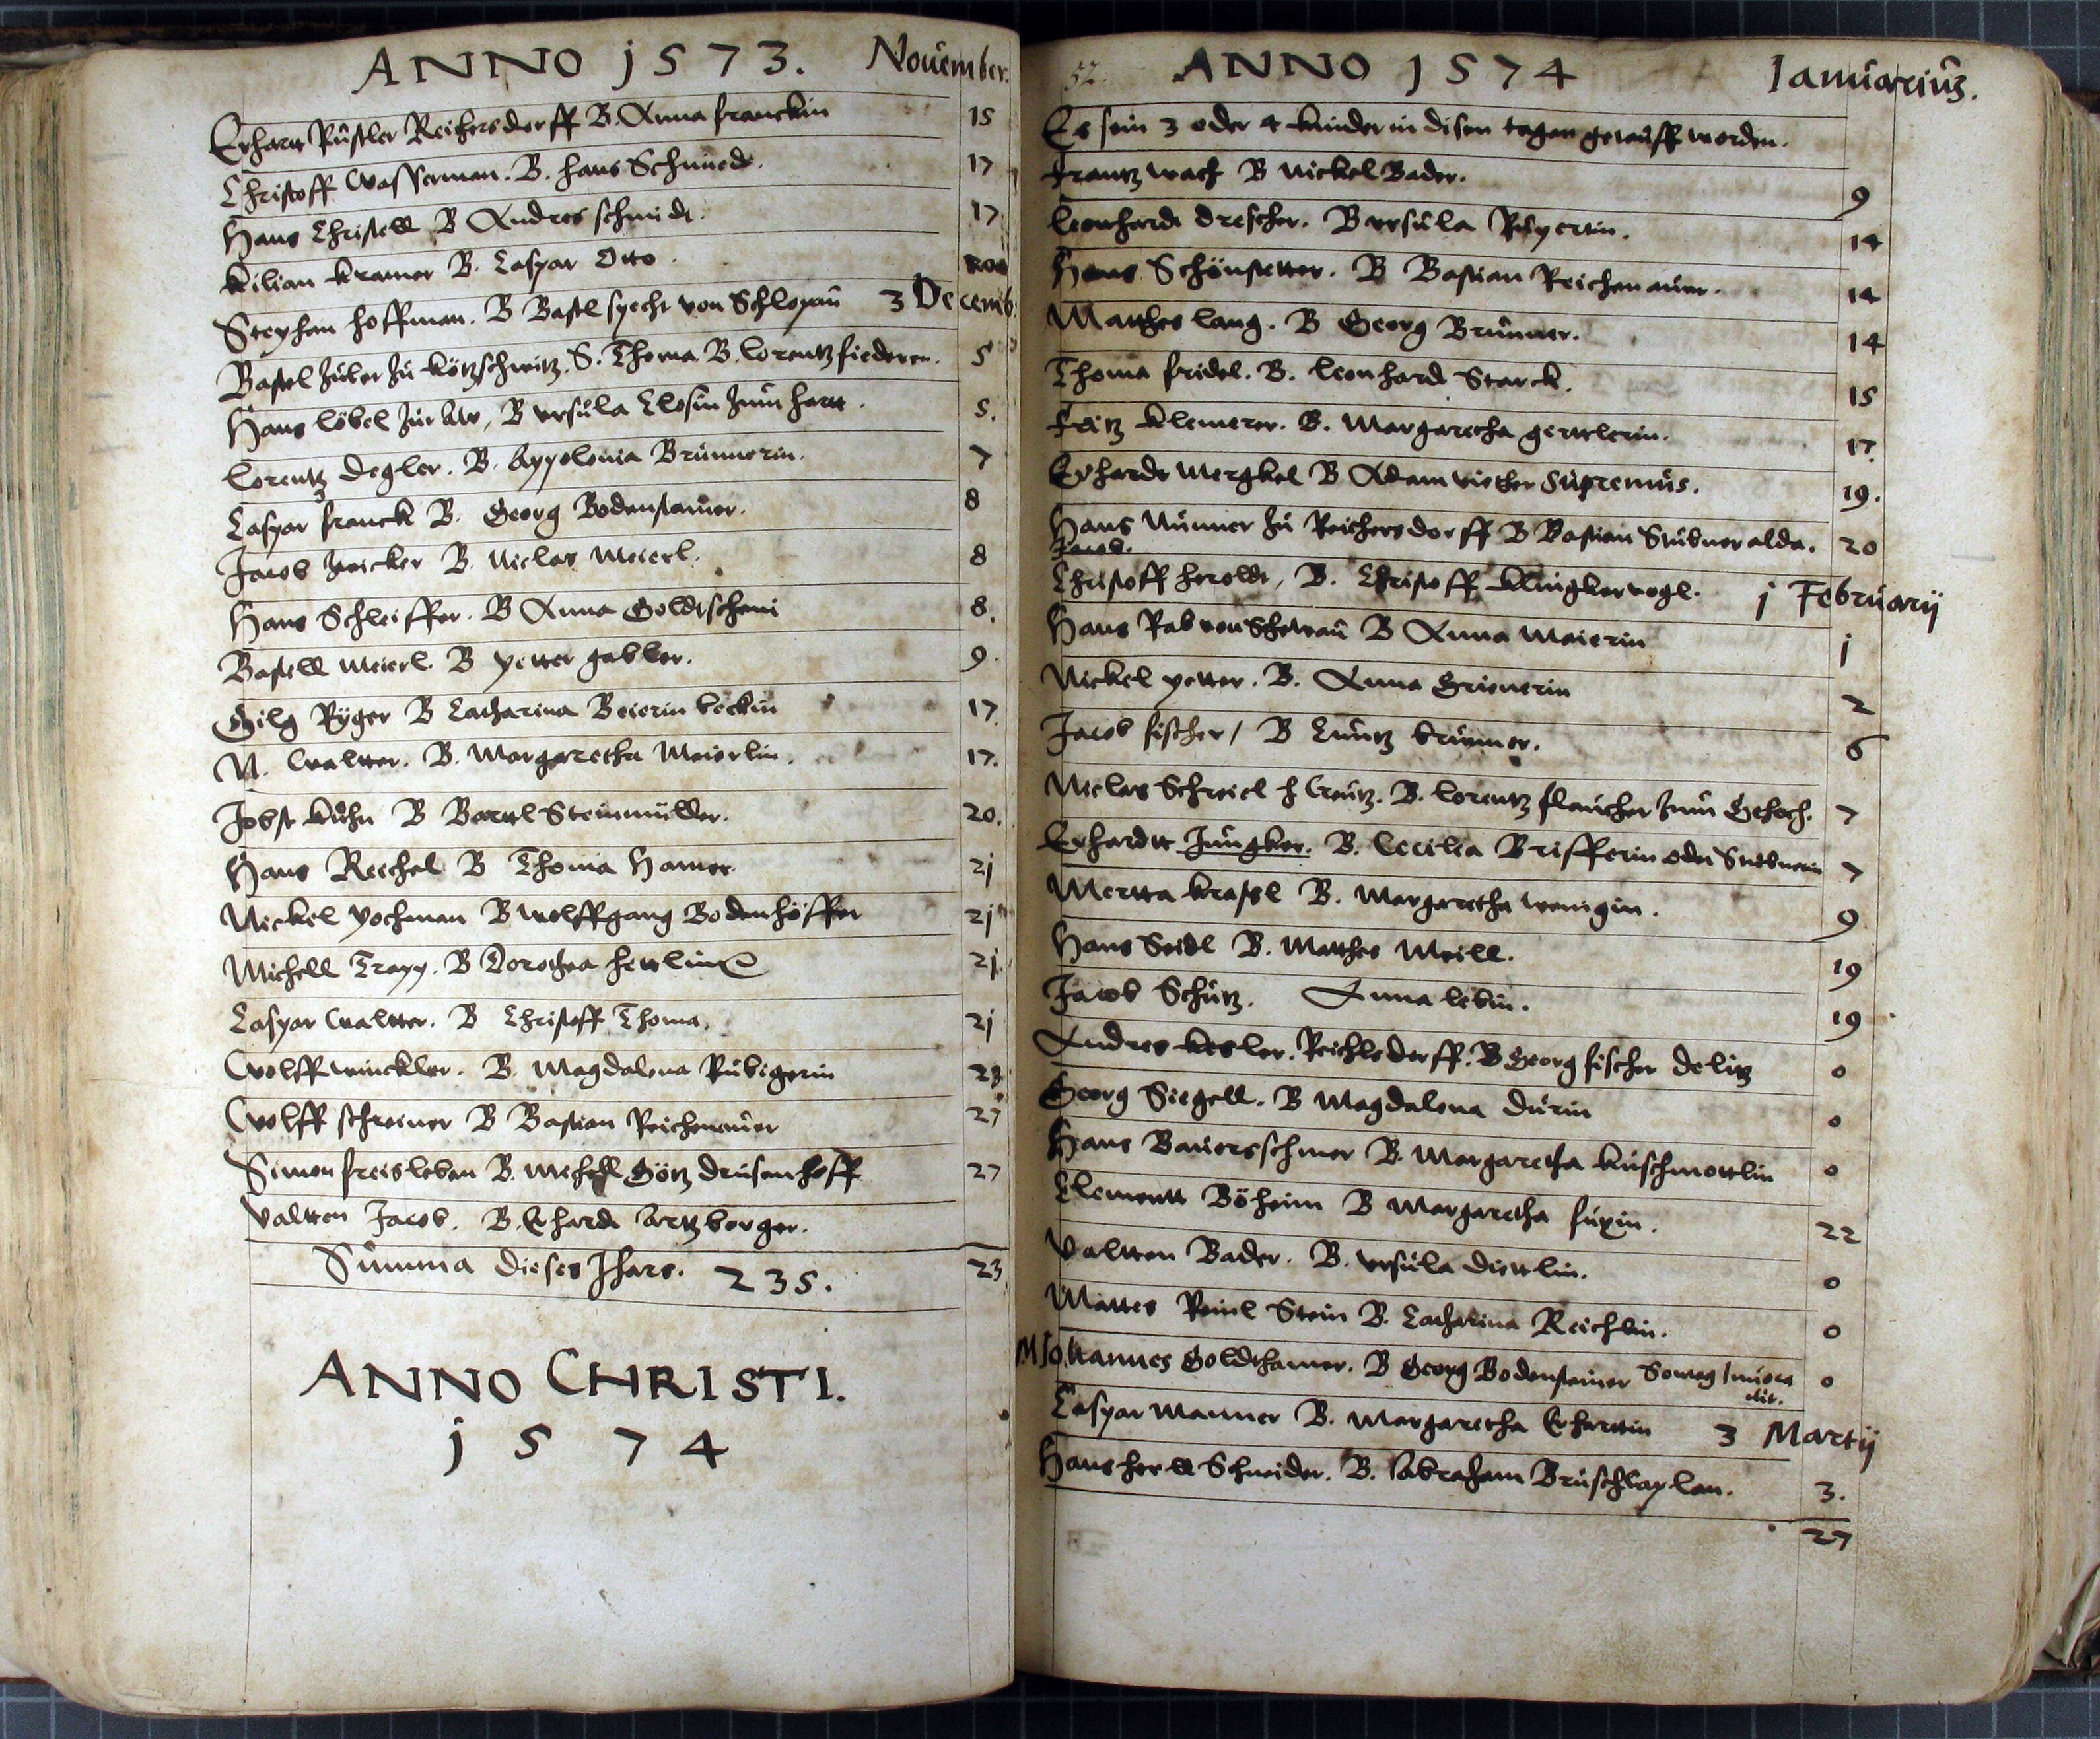 ANNO 1573. Nouember.
Erhartt Püstler Reichersdorff B. Anna franckin 15
Christoff Wasserman. B. hans Schmied. 17
Hans Christell B Andres schmidt. 17
Kilian Kramer B. Caspar Otto.
Stephan hoffman. B Bastl specht von Schlopau 3 Decemb.
Bastel Zuber zu Kötzschwitz. S. Thoma. B. Lorentz fiederer. 5
Hans Löbel zur Aw, B Vrsula Closin zum hartt. 5.
Lorentz Degler. B. Appolonia Brunnerin. 7
Caspar franck B. Georg Bodenstainer. 8
Jacob Zwicker B. Niclas Meierl. 8
Hans Schleiffer. B Anna Goldtschmi 8.
Bastell Meierl. B peter gabler. 9.
Gilg Ryger B Catharina Beierin beckin 17.
N. Waltter. B. Margaretha Meierlin. 17.
Jobst Kuhn B Barttl Steinmüller. 20.
Hans Reichel B Thoma Hamer. 21
Nickel pochman B Wolffgang Bodenhöffer 21
Michell Trapp. B Dorothea hertlin 21.
Caspar Waltter. B Christoff Thoma. 21
Wolff winckler. B. Magdalena Rübigerin 23
Wolff schreiner B Bastian Reichenauer 27
Simon freisleben B. Michell Götz Drusenhoff 27
Valtten Jacob. B. Erhardt Artzberger.
Summa dieses Jhars. 235. 23
ANNO CHRISTI.
1574
52. ANNO 1574 Ianuarius.
Es sein 3 oder 4 kinder in disen tagen getaufft worden.
Frantz wach B Nickel Bader. 9
Leonhardt Drescher. B Vrsula Rupertin. 14
Hans Schönstetter. B Bastian Reichenauer. 14
Matthes Lang. B Georg Brunner. 14
Thoma fridel. B. Leonhard Starck. 15
Fritz Klemerer. B. Margaretha gerttlerin. 17.
Erhardt Mergkel B Adam viether Supremus. 19.
Hans Nunner zu Reichersdorff B Bastian Stübner alda. 20
Jacob.
Christoff heroldt, B. Christoff Klingkervogl. 1 Februarij
Hans Rab von Schewau B Anna Maierin 1
Nickel petter. B. Anna Grienerin 2
Jacob fischer / B Cuntz Krumer. 6
Niclas Schreiel h Creutz. B. Lorentz flaucher zum Gehech. 7
Erhardtt Jungker. B. Cecilia Brifferin oder Stübnerin 7
Mertta Krassl B. Margaretha wenigin. 9
Hans Seidl B. Matthes Meill. 19
Jacob Schütz. Anna lebin. 19
Andres Kesler. Reichlsdorff. B Georg fischer Delitz 0
Georg Siegell. B Magdalena Dürin 0
Hans Bauersschmer B. Margaretha Kuschwottlin 0
Clementt Böheim B Margaretha fuxin. 22
Valtten Bader. B. Vrsula Diettlin. 0
Mattes Reinl Stein B. Catharina Reichlin. 0
M Johannes Goldthamer. B Georg Bodenstainer Sontag 0
Caspar Manner B. Margaretha Erharttin 3 Martij
Hans herll Schneider. B. Abraham Bruschlaplan. 3.
27